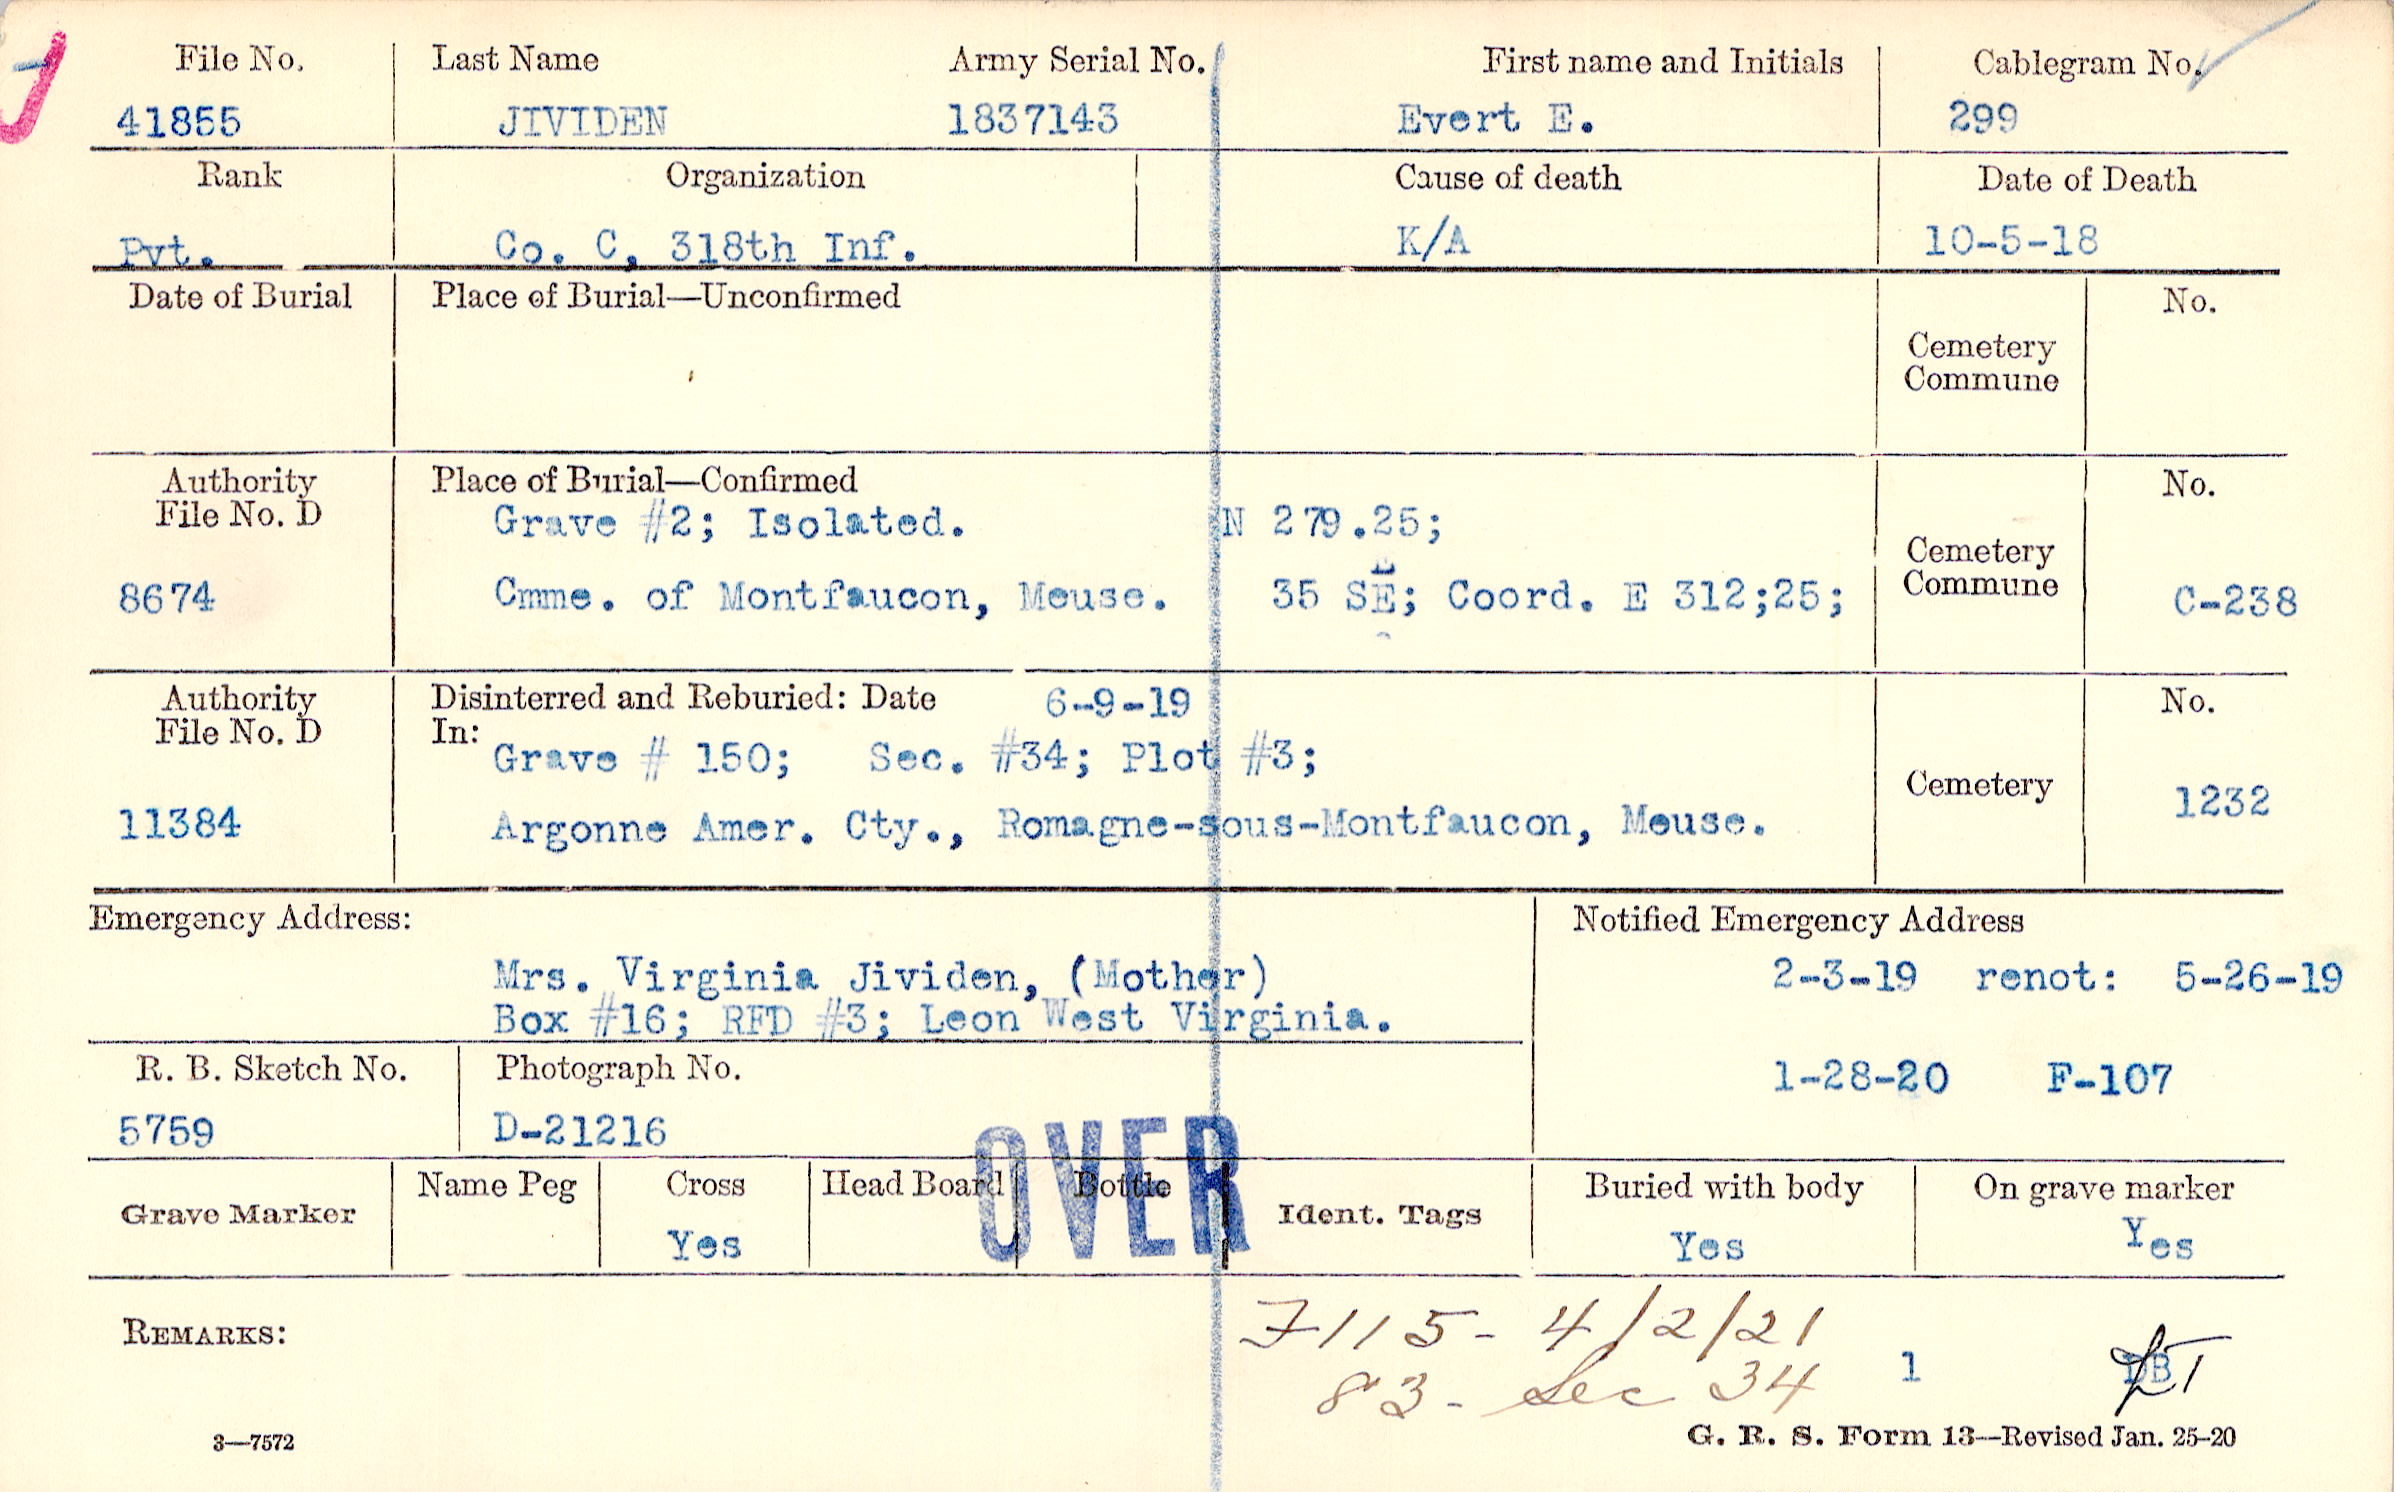 File No. Last Name Army Serial No. First name and Initials Cablegram No.
41855 JIVIDEN 1837143 Evert E. 299
Rank Organization Cause of death Date of Death
Pvt. Co. C, 318th Inf. K/A 10-5-18
Date of Burial Place of Burial—Unconfirmed No.
Cemetery
Commune
Authority Place of Burial—Confirmed No.
File No. D Grave #2; Isolated. N 279.25;
Cemetery
Commune
8674 Cmme. of Montfaucon, Meuse. 35 SE; Coord. E 312;25; C-238
Authority Disinterred and Reburied: Date 6-9-19 No.
File No. D In:
Grave # 150; Sec. #34; Plot #3;
Cemetery
11384 Argonne Amer. Cty., Romagne-sous-Montfaucon, Meuse. 1232
Emergency Address: Notified Emergency Address
Mrs. Virginia Jividen, (Mother) 2-3-19 renot: 5-26-19
Box #16; RFD #3; Leon West Virginia.
R. B. Sketch No. Photograph No. 1-28-20 F-107
5759 D-21216
OVER
Grave Marker Name Peg Cross Head Board Bottle Ident. Tags Buried with body On grave marker
Yes Yes Yes
REMARKS: F115- 4/2/21
83- Sec 34 1
3—7572 G. R. S. Form 13—Revised Jan. 25-20